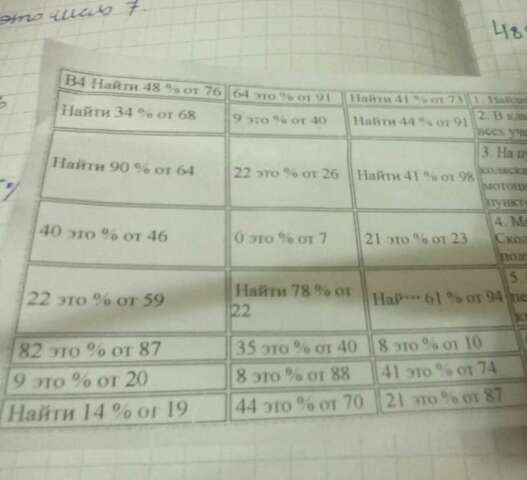 это число 7.
48
В4 Найти 48 % от 76 64 это % от 91 Найти 41 % от 73 1. Найди
Найти 34 % от 68 9 это % от 40 Найти 44 % от 91 2. В
всех
Найти 90 % от 64 22 это % от 26 Найти 41 % от 98 3. На
40 это % от 46 0 это % от 7 21 это % от 23 4.
22 это % от 59 Найти 78 % от
22
Най... 61 % от 94 5.
82 это % от 87 35 это % от 40 8 это % от 10
9 это % от 20 8 это % от 88 41 это % от 74
Найти 14 % от 19 44 это % от 70 21 это % от 87